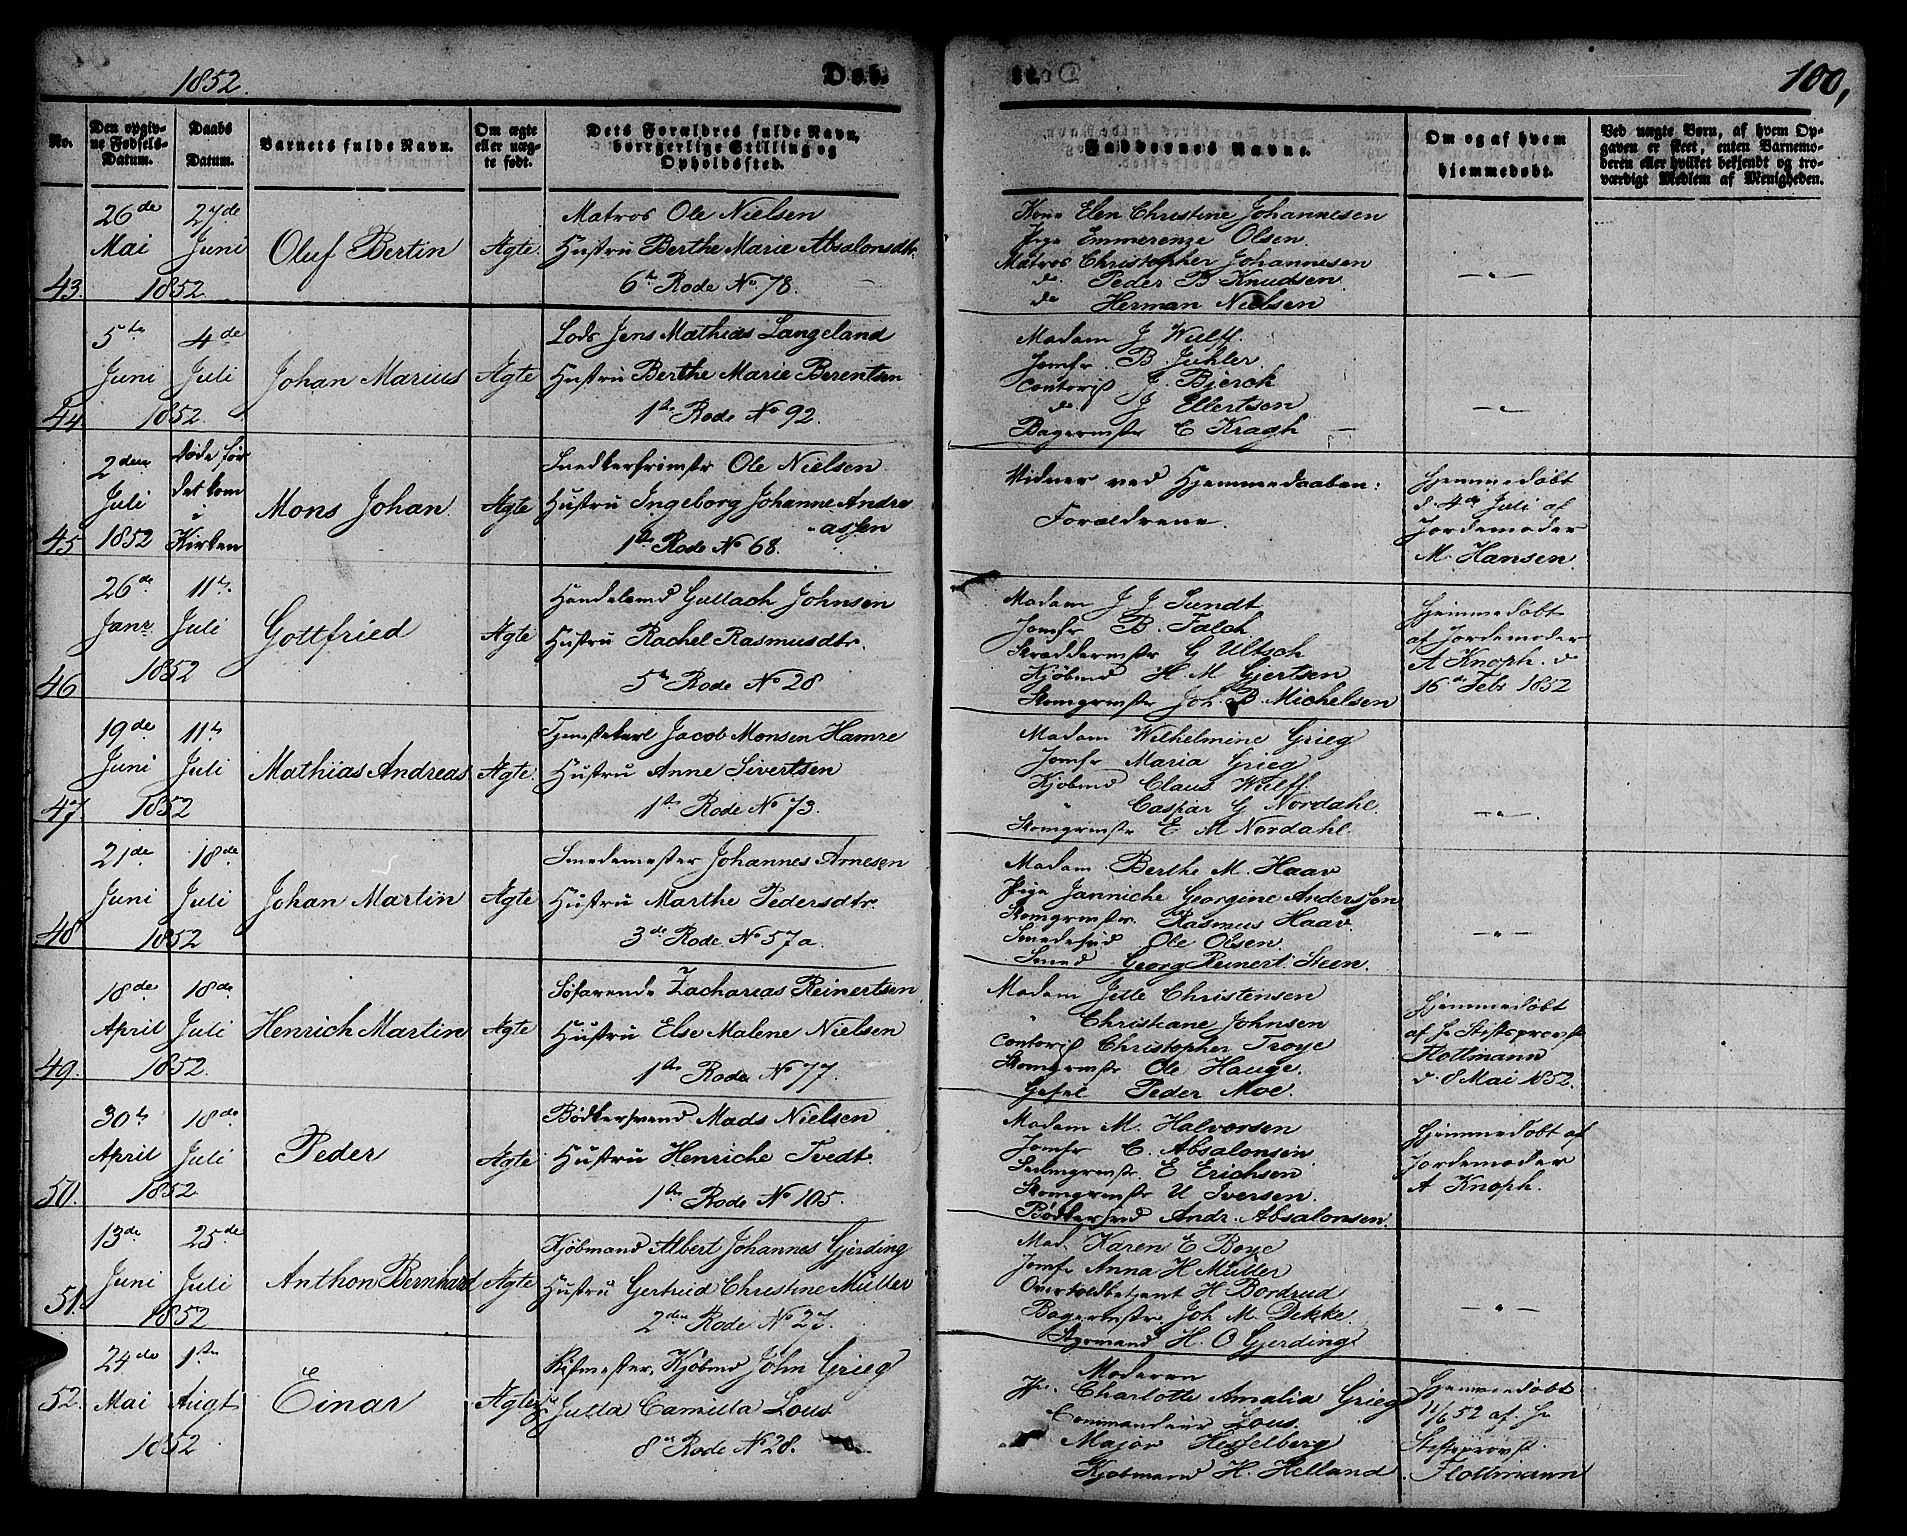 1852.
Døb.
100,
No.
Den opgivne Fødsels-Datum.
Daabs Datum.
Barnets fulde Navn.
Om ægte eller uægte født.
Dets Forældres fulde Navn, borgerlige Stilling og Opholdssted.
Faddernes Navne.
Om og af hvem hjemmedøbt.
Ved uægte Børn, af hvem Opgaven er skeet, enten Barnemoderen eller hvilket bekjendt og troværdigt Medlem af Menigheden.
43.
26de Mai
27de Juni
1852.
Oluf Bertin
Ægte.
Matros Ole Nielsen
Hustru Berthe Marie Absalonsdtr.
6te Rode No 78.
Kone Elen Christine Johannesen
Pige Emmerenze Olsen.
Matros Christopher Johannesen
do. Peder B Knudsen.
do Herman Nielsen
— " —
44
5te Juni
4de Juli
1852.
Johan Marius
Ægte
Lods Jens Mathias Langeland
Hustru Berthe Marie Berentsen
1ste Rode No 92.
Madam J Wulff.
Jomfr. B. Juhler.
Contorist J. Bjerck
do. J Ellertsen
Bagermstr C Kragh
— " —
45
2den Juli 1852
døde før det kom i Kirken
Mons Johan.
Ægte
Snedkersvmstr Ole Nielsen.
Hustru Ingeborg Johanne Andre
-assen
1ste Rode No 68.
Vidner ved Hjemmedaaben:
Forældrene.
Hjemmedøbt
d. 4de Juli af
Jordemoder
M. Hansen.
46
26de Janr.
11te Juli
1852
Gottfried
Ægte
Handelsmd Gullach Johnsen
Hustru Rachel Rasmusdtr.
5te Rode No 28
Madam J J Sundt
Jomfr B. Falch
Skræddermstr G Ultsch
Kjøbmd H M Gjertsen
Skomgrmstr Joh. B. Michelsen
Hjemmedøbt
af Jordemoder
A Knoph. d
16de Febr 1852
47
19de Juni
11te Juli
1852
Mathias Andreas
Ægte.
Tjenestekarl Jacob Monsen Hamre
Hustru Anne Sivertsen
1ste Rode No 73.
Madam Wilhelmine Grieg
Jomfr Maria Grieg
Kjøbmd Claus Wulff.
" Caspar G Nordahl.
Skomgrmstr E M Nordahl.
— " —.
48
21de Juni
18de Juli
1852
Johan Martin
Ægte
Smedemester Johannes Arnesen
Hustru Marthe Pedersdtr.
3de Rode No 57a.
Madam Berthe M. Haav
Pige Janniche Georgine Anderssen
Skomgrmstr. Rasmus Haav.
Smedesvd Ole Olsen.
Smed Georg Reinert Steen.
— " —
49.
18de April
18de Juli
1852.
Henrich Martin
Ægte
Søfarende Zacharias Reinertsen
Hustru Else Malene Nielsen
1ste Rode No 77.
Madam Jette Christensen
" Christiane Johnsen
Contorist Christopher Troye
Skomgrmstr Ole Hauge.
Gesel Peder Moe.
Hjemmedøbt
af Hr Stiftsprovst
Flottmann
d. 8 Mai 1852.
50.
30te April
18de Juli
1852.
Peder
Ægte
Bødkersvend Mads Nielsen
Hustru Henriche Tvedt.
1ste Rode No 105.
Madam M. Halvorsen
Jomfr C. Absalonsen
Seilmgrmstr. E Erichsen
Skomgrmstr U Iversen.
Bødkersvd Andr. Absalonsen.
Hjemmedøbt af
Jordemoder
A Knoph.
51.
13de Juni
25de Juli
1852
Anthon Bernhard
Ægte
Kjøbmand Albert Johannes Gjerding
Hustru Gertrud Christine Müller
2den Rode No 27.
Mad. Karen E Boye
Jomfr Anna H Müller
Overtoldbetjent H Bordrud
Bagermstr. Joh M. Dekke.
Styrmand H. O Gjerding
— " —
52.
24de Mai
1ste Augt
1852
Einar
Ægte
Kjøbmd John Grieg
Jutta Camilla Lous
8de Rode No 28.
Moderen
Charlotte Amalia Grieg
Commandeur Lous.
Major Hesselberg
Kjøbmand H. Helland
Hjemmedøbt
11/6 52 af Hr
Stiftsprovst.
Flottmann